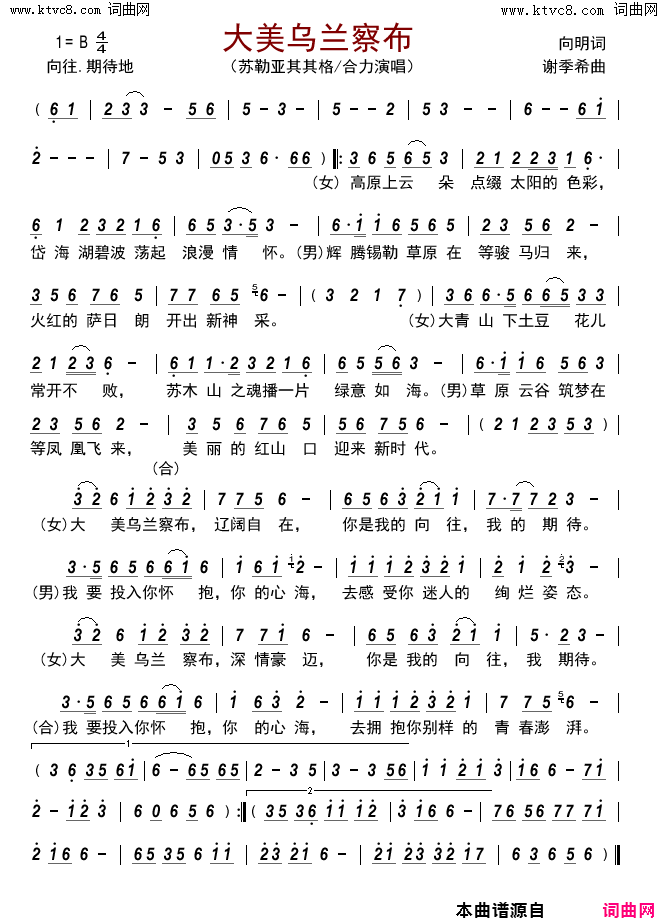 www.ktvc8.com 词曲网 www.ktvc8.com 词曲网
大美乌兰察布
1=B 4/4
向明词
向往.期待地 (苏勒亚其其格/合力演唱) 谢季希曲
( 6 1 | 2 3 3 - 5 6 | 5 - 3 5 | 2 - - - | 6 - - 6 1 |
2 - - - | 7 - 5 3 | 0 5 3 6 · 6 6 ) ‖: 3 6 5 6 5 3 | 2 1 2 2 3 1 6 · |
(女) 高原上云 朵 点缀 太阳的 色彩,
6 1 2 3 2 1 6 | 6 5 3 · 5 3 - | 6 · 1 1 6 5 6 5 | 2 3 5 6 2 - |
岱 海 湖碧波 荡起 浪漫 情 怀。(男)辉 腾锡勒 草原 在 等骏 马归 来,
3 5 6 7 6 5 | 7 7 6 5 5 6 - | ( 3 2 1 7 ) | 3 6 6 · 5 6 6 5 3 3 |
火红的 萨日 朗 开出 新神 采。 (女)大青 山 下土豆 花儿
2 1 2 3 6 - | 6 1 1 · 2 3 2 1 6 | 6 5 5 6 3 - | 6 · 1 1 6 5 6 5 |
常开不 败, 苏木 山 之魂播一片 绿意 如 海。(男)草 原 云谷 筑梦在
2 3 5 6 2 - | 3 5 6 7 6 5 | 5 6 7 5 6 - | ( 2 1 2 3 5 3 ) |
等凤 凰飞 来, 美 丽 的 红山 口 迎来 新时 代。
(合)
3 2 6 1 2 3 2 | 7 7 5 6 - | 6 5 6 3 2 1 1 | 7 · 7 7 2 3 - |
(女)大 美乌兰察布, 辽阔自 在, 你是我的 向 往, 我 的 期 待。
3 · 5 6 5 6 6 6 1 | 1 6 1 1 2 - | 1 1 1 2 3 2 1 | 2 1 2 2 3 - |
(男)我 要 投入你怀 抱,你 的心 海, 去感 受你 迷人的 绚 烂 姿态。
3 2 6 1 2 3 2 | 7 7 6 1 - | 6 5 6 3 2 1 1 | 5 · 3 6 - |
(女)大 美 乌兰 察布,深 情豪 迈, 你是 我的 向 往, 我 期待。
3 · 5 6 5 6 6 6 1 | 1 6 3 2 - | 1 1 5 5 3 2 1 | 7 7 5 5 6 - |
(合)我 要投入你怀 抱,你 的心 海, 去拥 抱你别样 的 青 春澎 湃。
1
( 3 6 3 5 6 1 | 6 - 6 5 6 5 | 2 - 3 5 | 3 - 3 5 6 | 1 1 2 1 3 | 1 6 6 - 7 1 |
2
2 - 1 2 3 | 6 0 6 5 6 ) :‖ ( 3 5 3 6 1 1 1 2 | 3 1 6 6 - | 7 6 5 6 7 7 1 |
2 1 6 6 - | 6 5 3 5 6 1 1 | 2 3 2 1 - | 2 2 3 2 3 2 1 | 6 3 6 5 6 ) ‖
本曲谱源自 词曲网